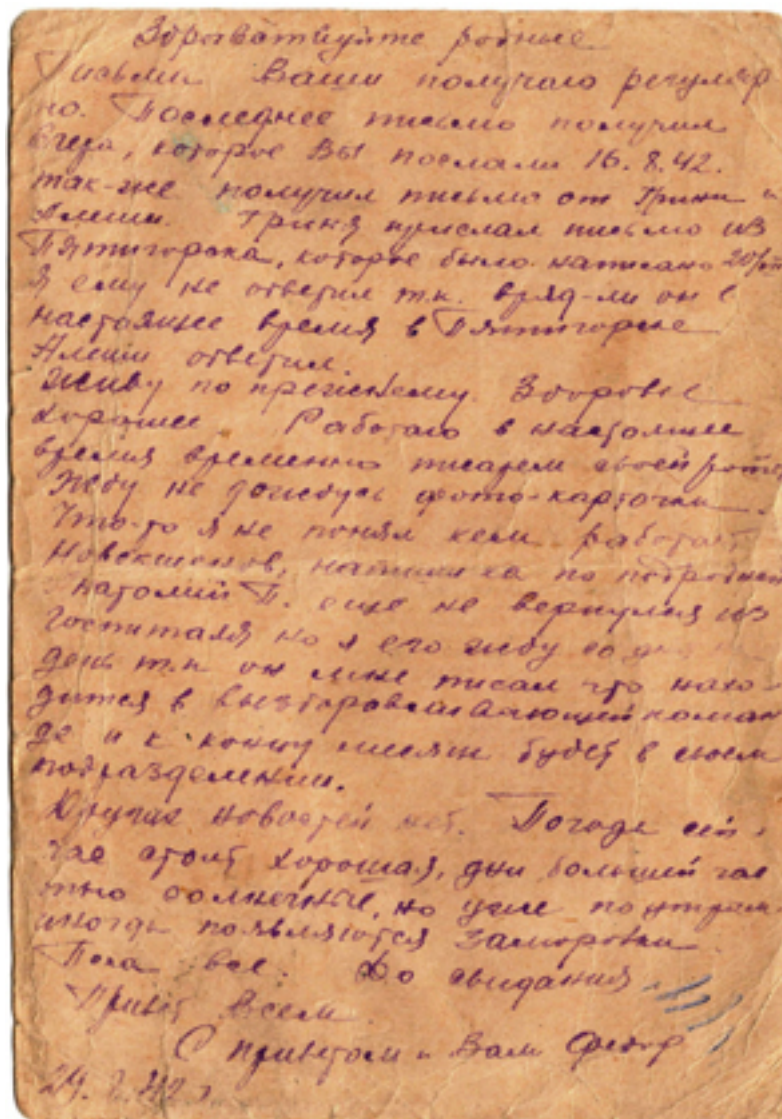 Здравствуйте родные
Письма Ваши получаю регуляр
но. Последнее письмо получил
вчера, которое Вы послали 16.8.42.
так-же получил письмо от Грини и
Алеши. Гриня прислал письмо из
Пятигорска, которое было написано
Я ему не ответил т.к. вряд-ли он в
настоящее время в Пятигорске
Алеши ответил.
Живу по прежнему. Здоровье
хорошее. Работаю в настоящее
время временно писарем своей роты
Жду не дождусь фото-карточки.
Что-то я не понял кем работает
по подробней
натолий П. еще не вернулся из
госпиталя но я его жду со дня на
день т.к он мне писал что нахо-
дится в выздоравливающей коман
де и к концу месяца будет в своем
подразделении.
Других новостей нет. Погода сей-
час стоит хорошая, дни большей час
тью солнечные, но уже по утрам
иногда появляются заморозки
Пока все. До свидания
Привет всем.
С приветом к Вам Федор
29.8.42 г